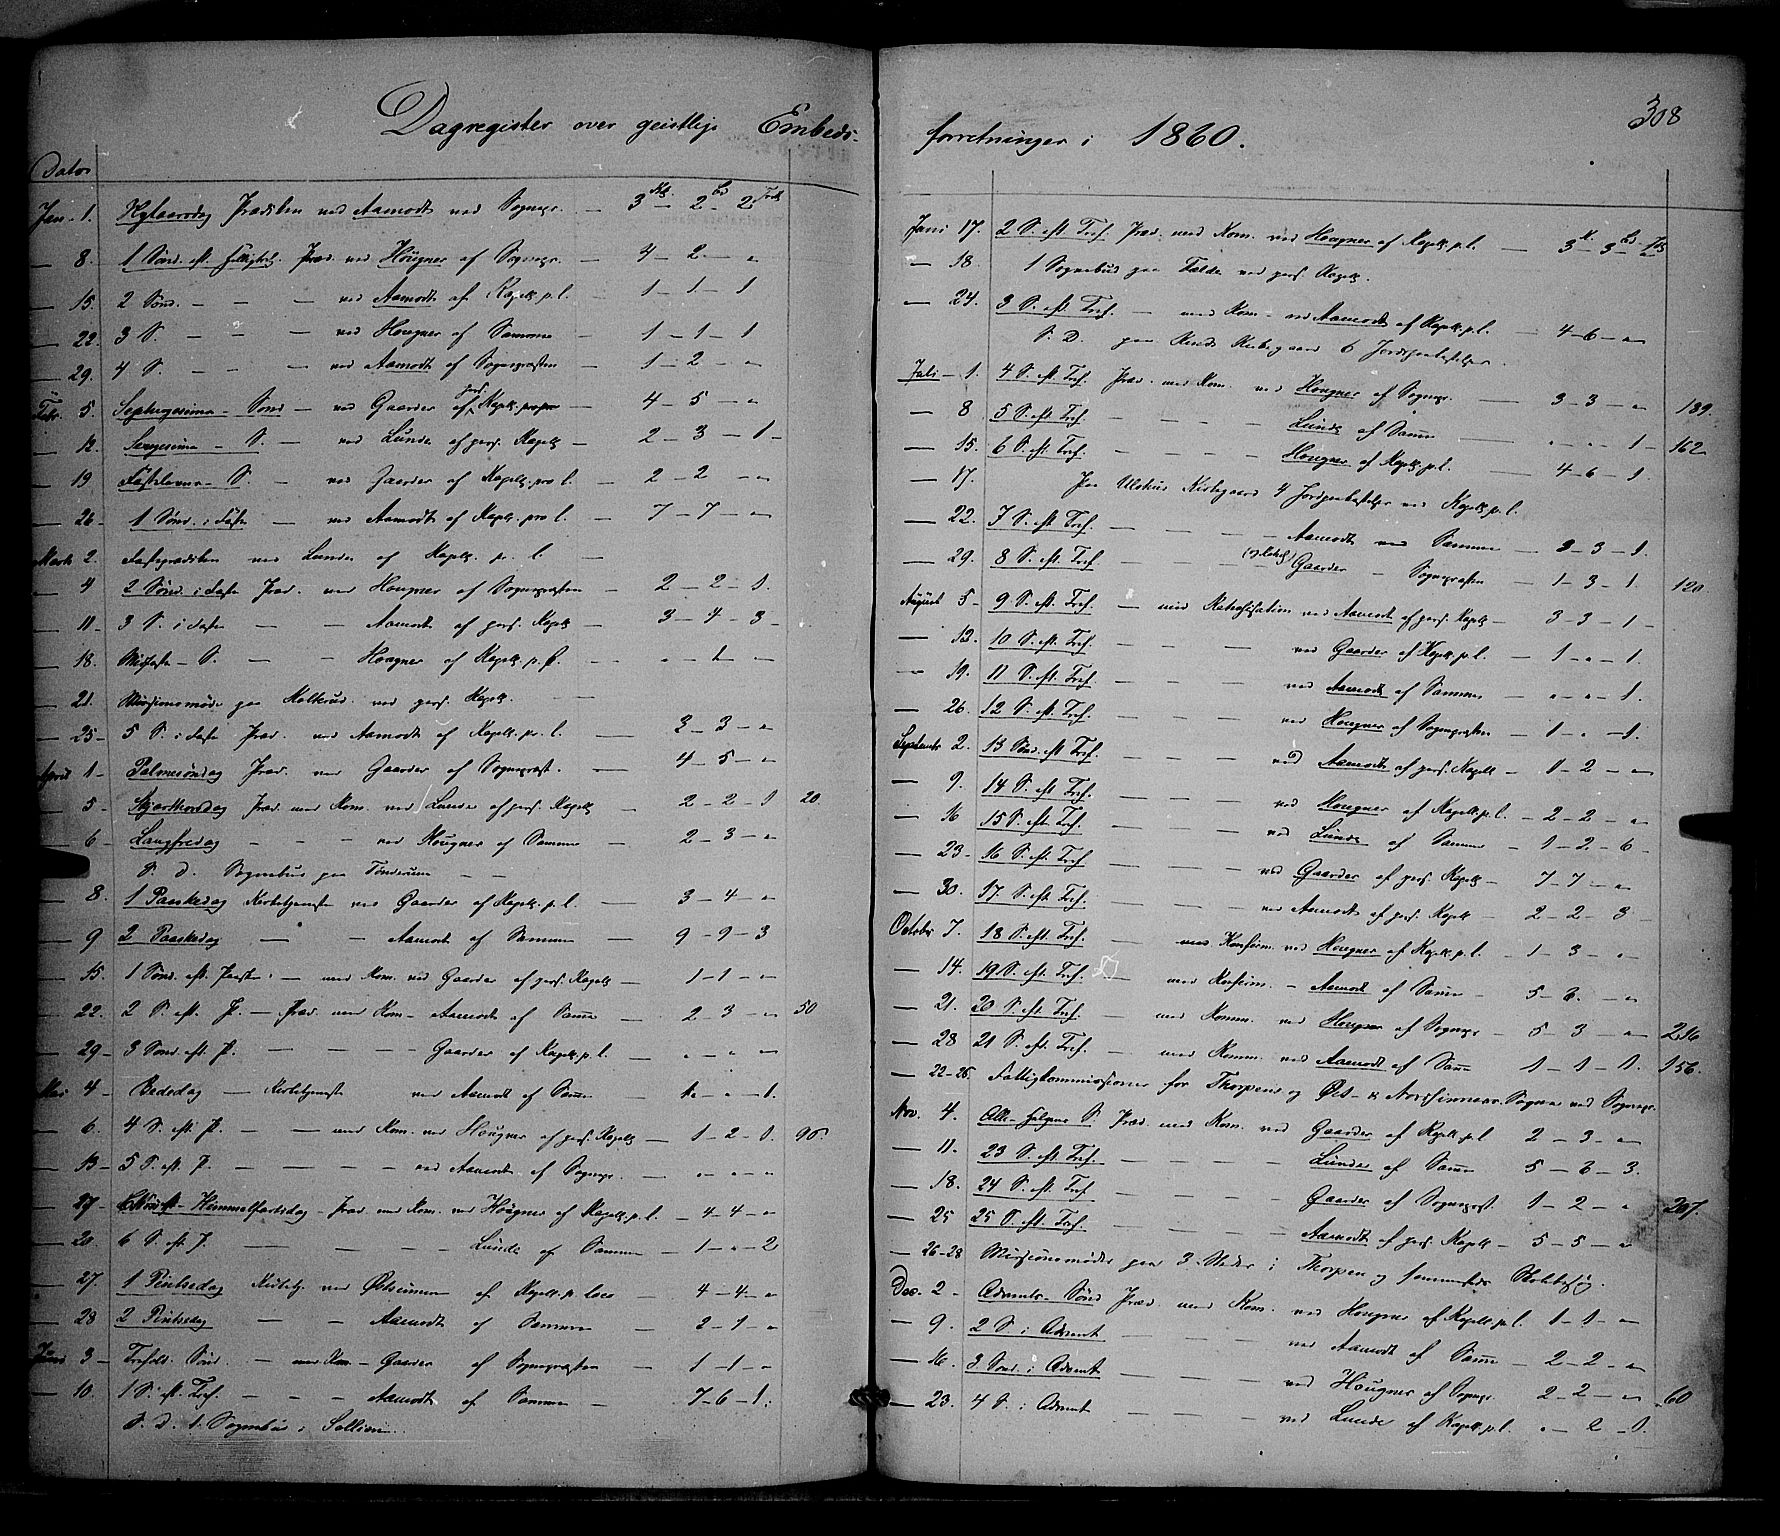 Dagregister over geistlige Embeds-
Datos
Jan. 1. Nytaarsdag Prædiken ved Aamodt ved Sognepr. — 3 Kl. 2 Bd 2 Trol
— 8. 1 Sönd. eft. Præd. ved Hougner af Sognepr. — 4 — 2 — "
— 15. 2 Sönd. — — — ved Aamodt af Kapell. p. l. — 1 — 1 — 1
— 22. 3 S. — — — ved Hougner af Samme — 1 — 1 — 1
— 29. 4 S. — — — ved Aamodt af Sognepræsten — 1 — 2 — "
Febr. 5. Septuagesima — Sönd — ved Gaarder af pers. Kapell. — 4 — 5 — "
— 12. Sexagesima — S. — ved Lunde af pers. Kapell — 2 — 3 — 1 —
— 19. Fastelavns — S. — ved Gaarder af Kapell. pro l. — 2 — 2 — "
— 26. 1 Sönd. i Faste — ved Aamodt af Kapell. pro l. — 7 — 7 — "
Marts 2. Fasteprædiken ved Lunde af Kapell. p. l. —
— 4 2 Sönd. i Faste Præd. ved Hougner af Sognepræsten — 2 — 2 — 1.
— 11 — 3 S. i Faste — — Aamodt af pers. Kapell — 3 — 4 — 3 —
— 18. Midfaste — S. — — Hougner af Kapell. p. l. — " — 1 — "
— 21. Missionsmøde paa ved pers. Kapell. —
— 25 — 5 S. i Faste Præd. ved Aamodt af Kapell. p. l. — 3 — 3 — "
April 1 — Palmesöndag Præd. ved Gaarder af Sognepræst. — 4 — 5 — "
— 5. Skjærthorsdag Præd. med Kom. ved Lunde af pers. Kapell — 2 — 2 — 1 20
— 6 — Langfredag — — ved Hougner af Samme 2 — 3 — "
S. D. Sognebud paa — —
— 8. 1 Paaskedag Kirketjeneste ved Gaarder af Kapell. p. l. — 3 — 4 — "
— 9 2 Paaskedag — — Aamodt af Samme — 9 — 9 — 3
— 15. 1 Sönd. eft. Paaske — med Kom. ved Gaarder af pers. Kapell — 1 — 1 — "
— 22. 2 S. eft. P. — Præd. med Kom — Aamodt af Samme — 2 — 3 — " 50
— 29 — 3 Sönd. eft. P. — — — Gaarder af Kapell. p. l. — " — " — "
Mai 4 — Bededag — Kirketjeneste ved Aamodt af Samme — — " — 1.
— 6. 4 S. eft. P. — — med Kom. ved Hougner af pers. Kapell — 1 — 2 — 1. 96.
— 13 — 5 S. eft. P. — — — ved Aamodt af Sognepr. — " — " — "
— Himmelfartsdag — Præd. med Kom. ved Hougner af Kapell. p. l. — 4 — 4 — "
— 20 6 S. eft. P. — — — Lunde af Samme — 1 — " — 2
— 27. 1 Pintsedag Kirketj. ved af Kapell. p. loco — 4 — 4 — "
— 28 2 Pintsedag — — Aamodt af Samme — 2 — 1 — "
Juni 3 — Trefold. Sönd. — med Kom — Gaarder af Sognepræsten — 1 — 1 — "
— 10. 1 S. eft. Tref. — — Aamodt af Samme — 7 — 6 — 1.
S. D. 1 Sognebud i
308
forretninger i 1860.
Juni 17. 2 S. eft. Tref. Præd. med Kom. ved Hougner af Kapell. p. l. — 3 Kl. — 3 Bd —
— 18. 1 Sognebud paa ved pers. Kapell.
— 24. 3 S. eft. Tref. — med Kom — ved Aamodt af Kapell. p. l. — 4 — 6 — "
S. D. paa Kirkegaard 6 Jordpaakastelser.
Juli — 1. 4 S. eft. Tref. Præd. med Kom. ved Hougner af Sognepr. — 3 — 3 — " 189.
— 8 5 S. eft. Tref. — — — Lunde af Samme " — " — 1 — 162
— 15. 6 S. eft. Tref. — — — Hougner af Kapell. p. l. — 4 — 6 — 1.
— 17. Paa Kirkegaard 4 Jordpaakastelser ved Kapell. p. l.
— 22. 7 S. eft. Tref. — — — Aamodt ved Samme — 3 — 3 — 1.
— 29. 8 S. eft. Tref. — — — Gaarder — Sognepræsten — 1 — 3 — 1. 120
August 5 — 9 S. eft. Tref. — med Katechisation ved Aamodt af pers. Kapell — 3 — 3 — 1 —
— 12. 10 S. eft. Tref. — — — ved Gaarder af Kapell. p. l. — 1 — " — 1.
— 19. 11 S. eft. Tref. — — — ved Aamodt af Samme — " — " — 1.
— 26. 12 S. eft. Tref. — — — ved Hougner af Sognepræsten — 1 — " — 1.
Septembr 2. 13 Sönd. eft. Tref. — — — ved Aamodt af pers. Kapell — 1 — 2 — "
— 9. 14 S. eft. Tref. — — — ved Hougner af Kapell. p. l. — 2 — 2 — "
— 16 15 S. eft. Tref. — — — ved Lunde af Samme — 1 — 2 — 6 —
— 23 — 16 S. eft. Tref — — — ved Gaarder af pers. Kapell — 7 — 7 — "
— 30. 17. S. eft. Tref. — — — ved Aamodt af pers. Kapell — 2 — 2 — 3 —
Octobr 7. 18 S. eft. Tref. — med Konfirm. ved Hougner af Kapell. p. l. — 1 — 3 — "
— 14. 19 S. eft. Tref. — med Konfirm. — Aamodt af Samme — 5 — 6. — "
— 21. 20 S. eft. Tref. — med Komm. ved Hougner af Sognepr — 5 — 3 — " 216
— 28 21 S. eft. Tref. — med Komm. ved Aamodt af Samme 1 — 1 — 1. 156.
— 22-26. Fattigkommissioner for Thorpens og Øst- & Nordsinnens Sogne ved Sognepr.
Nov. 4. Alle-Helgens S. Præd. med Kom. ved Gaarder af Kapell. p. l 2 — 3 — "
— 11. 23 S. eft. Tref. — — — Lunde af Samme 5 — 6 — 3.
— 18. 24 S. eft. Tref — — — Gaarder af Sognepræst. 1 — 2 — " 207.
— 25 25 S. eft. Tref. — — — Aamodt af pers. Kapell — 5 — 5 — "
— 26-28 Missionsmøder paa 3 Steder i Thorpen og
Dec. 2 — Advents-Sönd Præd. med Kom. ved Hougner af Kapell. p. l. 1 — 1 — "
— 9. 2 S. i Advent — — — ved Aamodt af Samme — 2 — 2 — "
— 16. 3 Sönd. i Advent — — — ved Hougner af Sognepr. 2 — 2 — "
— 23. 4 S. i Advent — — — ved Lunde af Kapell. p. l. " — 2 — 1. 60